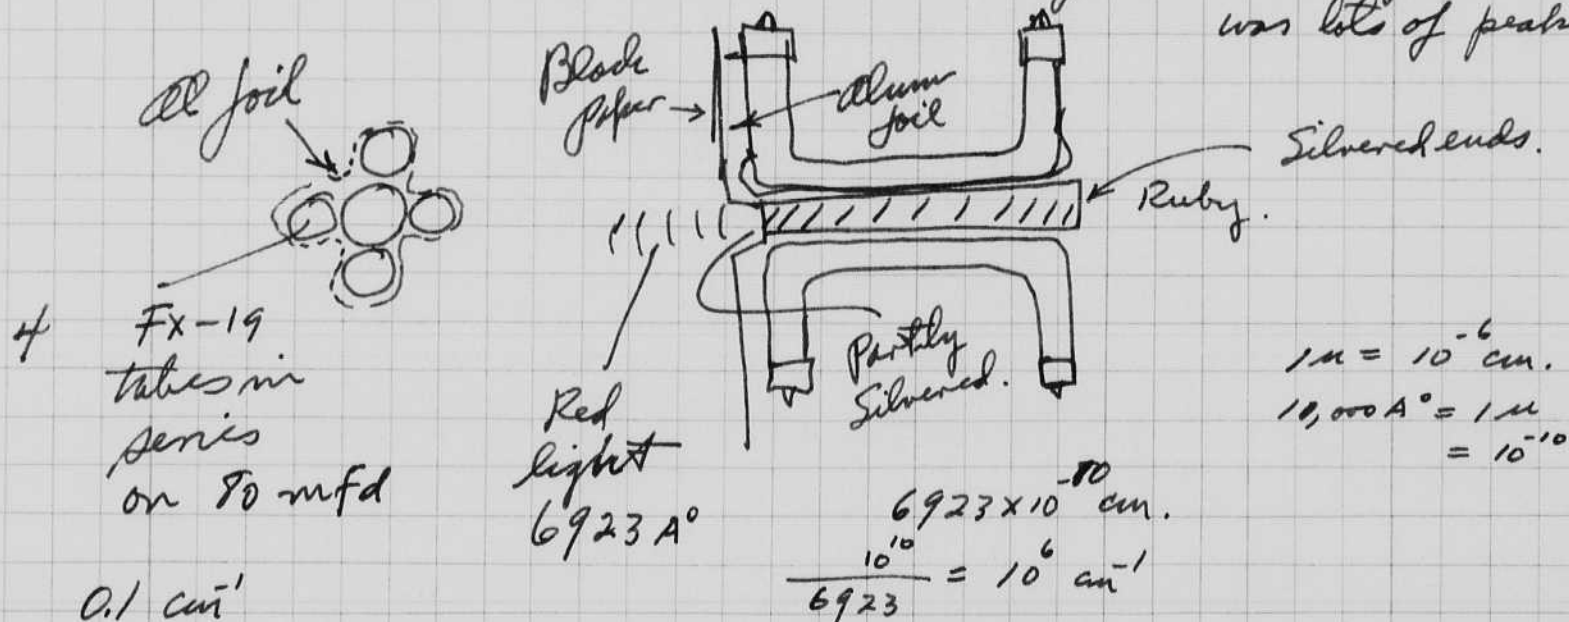 was lots of peak
Al foil
Black
paper
Alum
foil
Silvered ends.
Ruby.
4 FX-19
tubes in
series
on 80 mfd
Red
light
6923 A°
Partly
Silvered.
1µ = 10⁻⁶ cm.
10,000 A° = 1µ
= 10⁻¹⁰
6923 x 10⁻¹⁰ cm.
10¹⁰ / 6923 = 10⁶ cm⁻¹
0.1 cm⁻¹